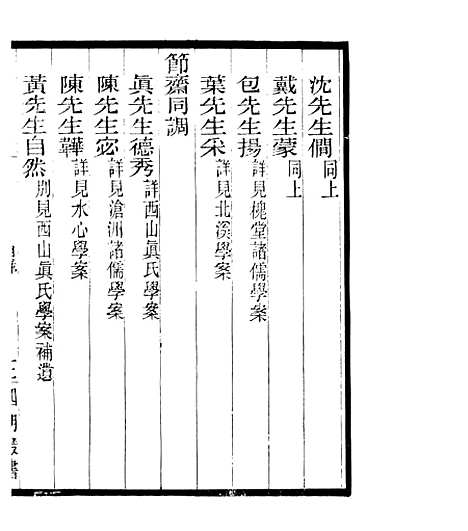 沈先生僩同上
戴先生蒙同上
包先生揚詳見槐堂諸儒學案
葉先生采詳見北溪學案
節齋同調
眞先生德秀詳西山眞氏學案
陳先生宓詳見滄洲諸儒學案
陳先生韡詳見水心學案
黃先生自然別見西山眞氏學案補遺
四明叢書